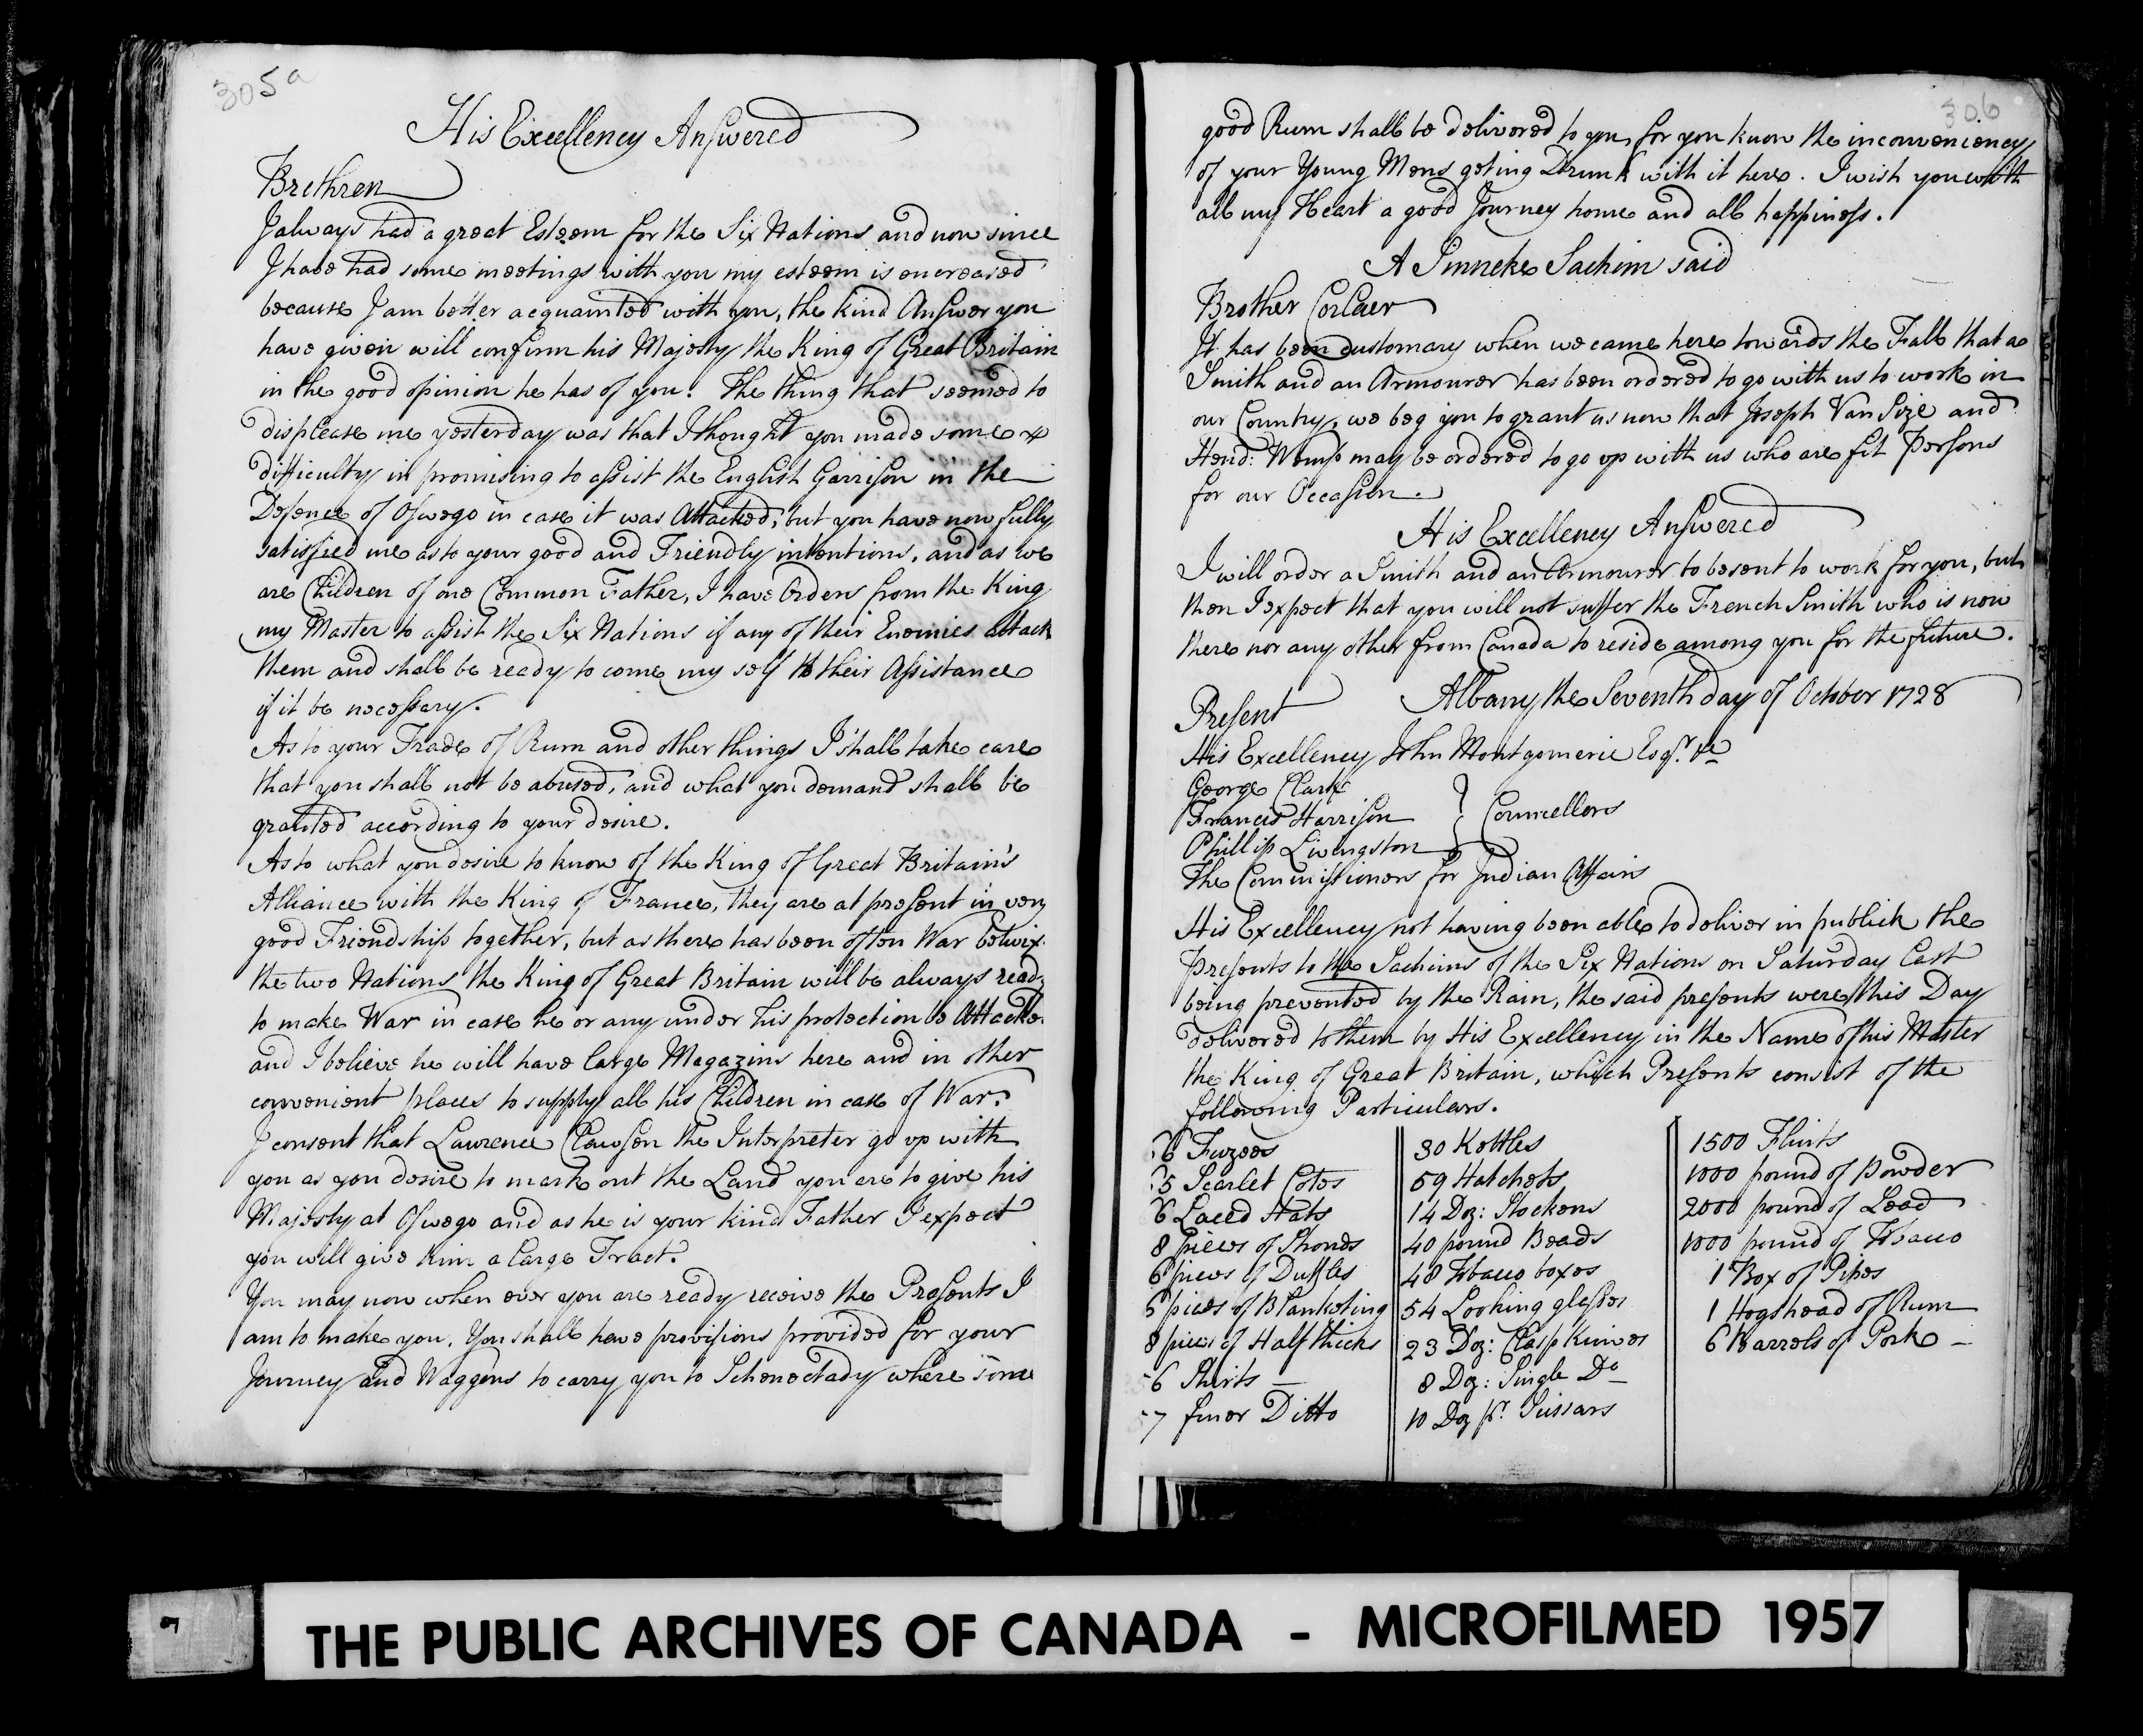 305a
His Excellency Answered
Brethren
I always had a great Esteem for the Six Nations and now since
I have had some meetings with you my esteem is encreased
because I am better acquainted with you, the kind Answer you
have given will confirm his Majesty the King of Great Britain
in the good opinion he has of you. The thing that seemed to
displease me yesterday was that I thought you made some
difficulty in promising to assist the English Garrison in the
Defence of Oswego in case it was Attacked, but you have now fully
satisfied me as to your good and Friendly intentions, and as we
are Children of one Common Father, I have Orders from the King
my Master to assist the Six Nations if any of their Enemies attack
them and shall be ready to come my self to their Assistance
if it be necessary.
As to your Trade of Rum and other things I shall take care
that you shall not be abused, and what you demand shall be
granted according to your desire.
As to what you desire to know of the King of Great Britain's
Alliance with the King of France, they are at present in very
good Friendship together, but as there has been often War betwix
the two Nations the King of Great Britain will be always ready
to make War in case he or any under his protection be Attacke
and I believe he will have large Magazins here and in other
convenient places to supply all his Children in case of War.
I consent that Lawrence Clawson the Interpreter go up with
you as you desire to mark out the Land you are to give his
Majesty at Oswego and as he is your kind Father I expect
you will give him a large Tract.
You may now when ever you are ready receive the Presents I
am to make you. You shall have provisions provided for your
Journey and Waggons to carry you to Schonectady where some
306
good Rum shall be delivered to you, for you know the inconveniency
of your Young Mens geting Drunk with it here. I wish you with
all my Heart a good Journey home and all happiness.
A Sinneke Sachim said
Brother Corlaer
It has been Customary when we came here towards the Fall that a
Smith and an Armourer has been ordered to go with us to work in
our Country, we beg you to grant us now that Joseph Van Size and
Hend: Wemp may be ordered to go up with us who are fit Persons
for our Occasion.
His Excellency Answered
I will order a Smith and an Armourer to be sent to work for you, but
then I expect that you will not suffer the French Smith who is now
there nor any other from Canada to reside among you for the future.
Albany the Seventh day of October 1728
Present
His Excellency John Montgomerie Esqr. &c
George Clark
Francis Harrison } Councellors
Phillip Livingston
The Commissioners for Indian Affairs
His Excellency not having been able to deliver in publick the
Presents to the Sachims of the Six Nations on Saturday last
being prevented by the Rain, the said presents were this Day
delivered to them by His Excellency in the Name of his Master
the King of Great Britain, which Presents consist of the
following Particulars.
6 Fuzees
5 Scarlet Cotes
6 Laced Hats
8 pieces of Strouds
6 pieces of Duffles
5 pieces of Blanketing
8 pieces of Half thicks
6 Shirts —
7 finer Ditto
30 Kettles
59 Hatchets
14 Doz: Stockens
40 pound Beads
48 Tobacco boxes
54 Looking glasses
23 Doz: Clasp Knives
8 Doz: Single Do
10 Doz pr. Scissars
1500 Flints
1000 pound of Powder
2000 pound of Lead
1000 pound of Tobacco
1 Box of Pipes
1 Hogshead of Rum
6 Barrels of Pork —
THE PUBLIC ARCHIVES OF CANADA - MICROFILMED 1957